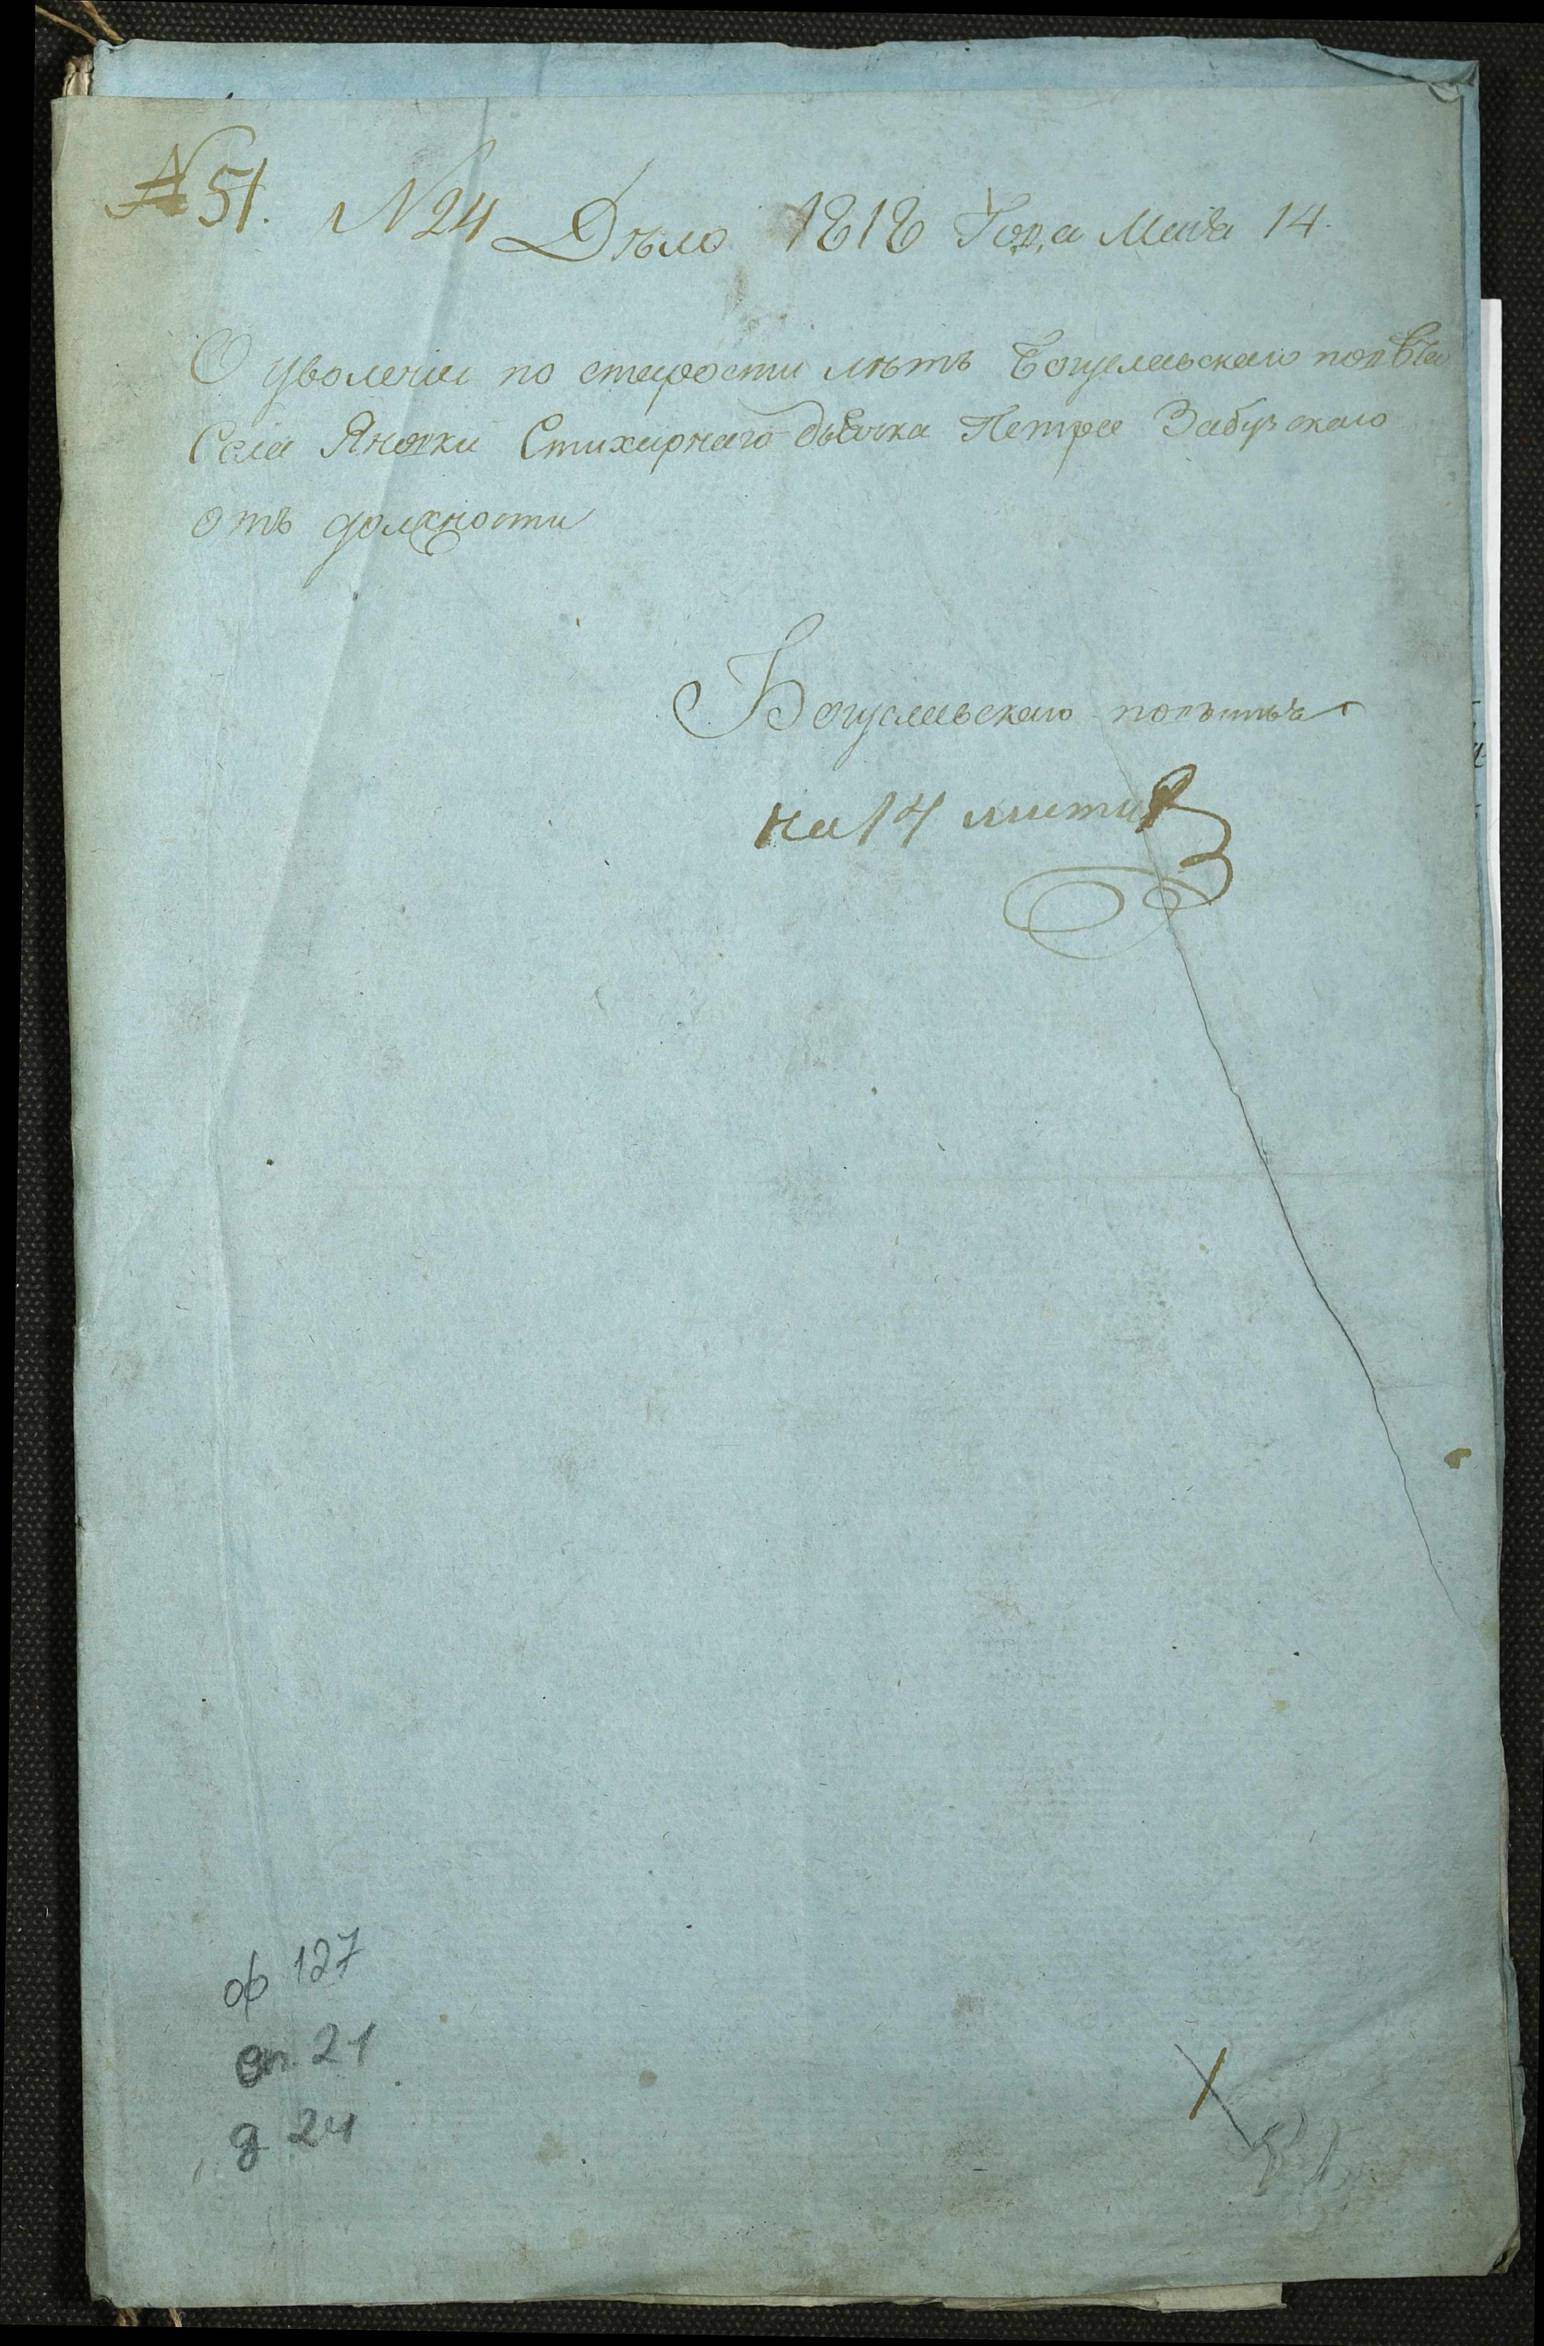 № 51. № 24 Дѣло 1818 Года Маія 14.
О уволеніи по старости лѣтъ Богуславского повѣта
Села Яновки Стихарнаго дьячка Петра Забузского
отъ должности
Богуславского повѣта
на 14 листахъ
ф 127
оп. 21
д 24
1